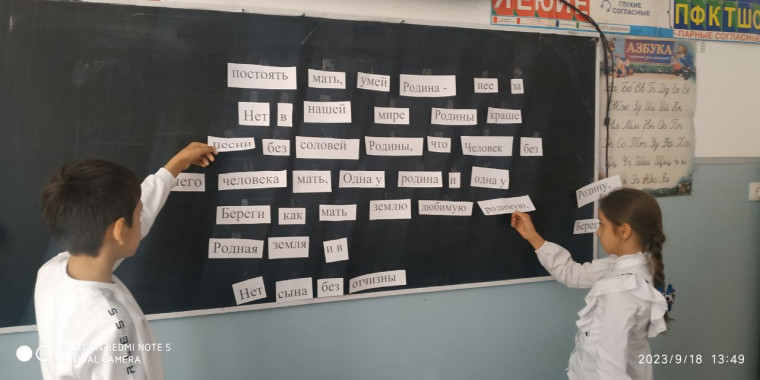 ГЛУХИЕ
СОГЛАСНЫЕ
ПФКТШС
ПАРНЫЕ СОГЛАСНЫЕ
АЗБУКА
постоять мать, умей Родина - нее за
Нет в нашей мире Родины краше
песни без соловей Родины, что Человек без
него человека мать, Одна у родина и одна у
Береги как мать землю любимую родимую,
Родину,
Береги
Родная земля и в
Нет сына без отчизны
REDMI NOTE 5
CAMERA
2023/9/18 13:49